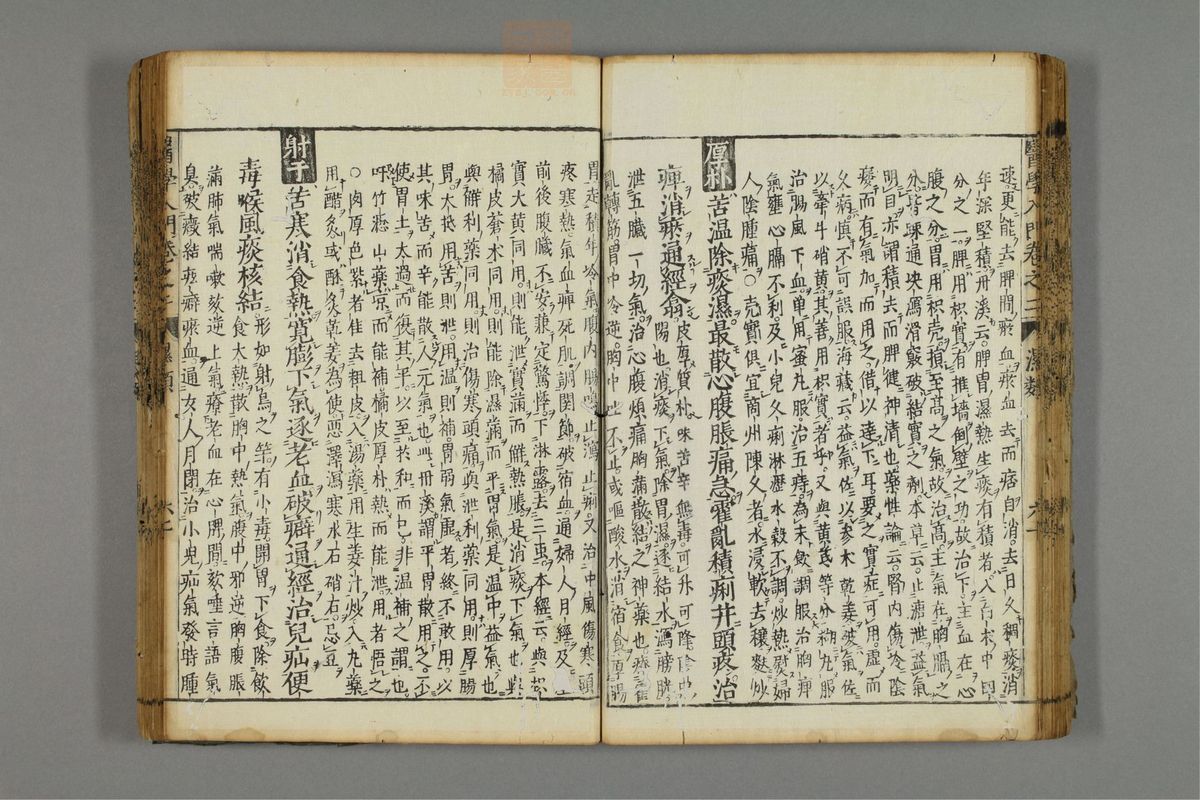 醫學入門卷之二 濕類 六十
速更能去脾間瘀血瘀血去而痞自消去日久稠痰消
年深堅積丹溪云脾胃濕熱生痰有積者入方木中
分之一脾用枳實有推墻倒壁之功故治下主血在心
腹之分胃用枳殼損至高之氣故治高主氣在胸膈之
分皆踈通决為滑竅破結實之劑本草云止瀉泄益氣
明目亦謂積去而脾健神清也藥性論云腎內傷冷陰
痿而有氣加而用之借以達下耳要之實症可用虛而
久病慎不可誤服海藏云益氣佐以參木乾姜破氣佐
以牽牛硝黃其善用枳實者乎又與黃芪等分糊丸服
治腸風下血單用蜜丸服治五痔為末飲調服治胸痺
氣壅心膈不利及小兒久痢淋瀝水穀不調炒熱熨婦
人陰腫痛○殼實俱宜商州陳久者水浸軟去穰麩炒
厚朴苦温除痰濕最散心腹脹痛急霍亂積痢并頭疼治
痺消瘀通經翕皮厚質朴味苦辛無毒可升可降陰中
陽也消痰下氣除胃濕逐結水瀉膀胱
泄五臟一切氣治心腹煩痛胸滿散結之神藥也療霍
亂轉筋胃中冷逆胸中止不止或嘔酸水消宿食厚腸
胃走積年冷氣腹內腸鳴止瀉止痢又治中風傷寒頭
疼寒熱氣血痺死肌調関節破宿血通婦人月經及
前後腹臟不安兼定驚悸下淋露去三虫本經云與枳
實大黃同用則能泄實滿而觧熱脹是消痰下氣也與
橘皮蒼术同用則能除濕滿而平胃氣是温中益氣也
與觧利藥同用則治傷寒頭痛與泄利藥同用則厚腸
胃大抵用苦則泄用温則補胃弱氣虛者終不敢用以
其味苦而辛能散人元氣也丹溪謂平胃散用之不
使胃土太過而復其平以至於和而已非温補之謂也
吁竹瀝山藥凉而能補橘皮厚朴熱而能泄用者悟之
○肉厚色紫者佳去粗皮入湯藥用生姜汁炒入丸藥
用醋炙或酥炙乾姜為使惡澤瀉寒水石硝石忌豆
射干苦寒消食熱寬膨下氣逐老血破癖通經治兒疝便
毒喉風痰核結形如射鳥之竿有小毒開胃下食除飲
食大熱散胸中熱氣腹中邪逆胸腹脹
滿肺氣喘嗽欬逆上氣療老血在心脾間欬唾言語氣
臭破癥結痃癖瘀血通女人月閉治小兒疝氣發時腫
醫學入門卷之二 濕類 六十